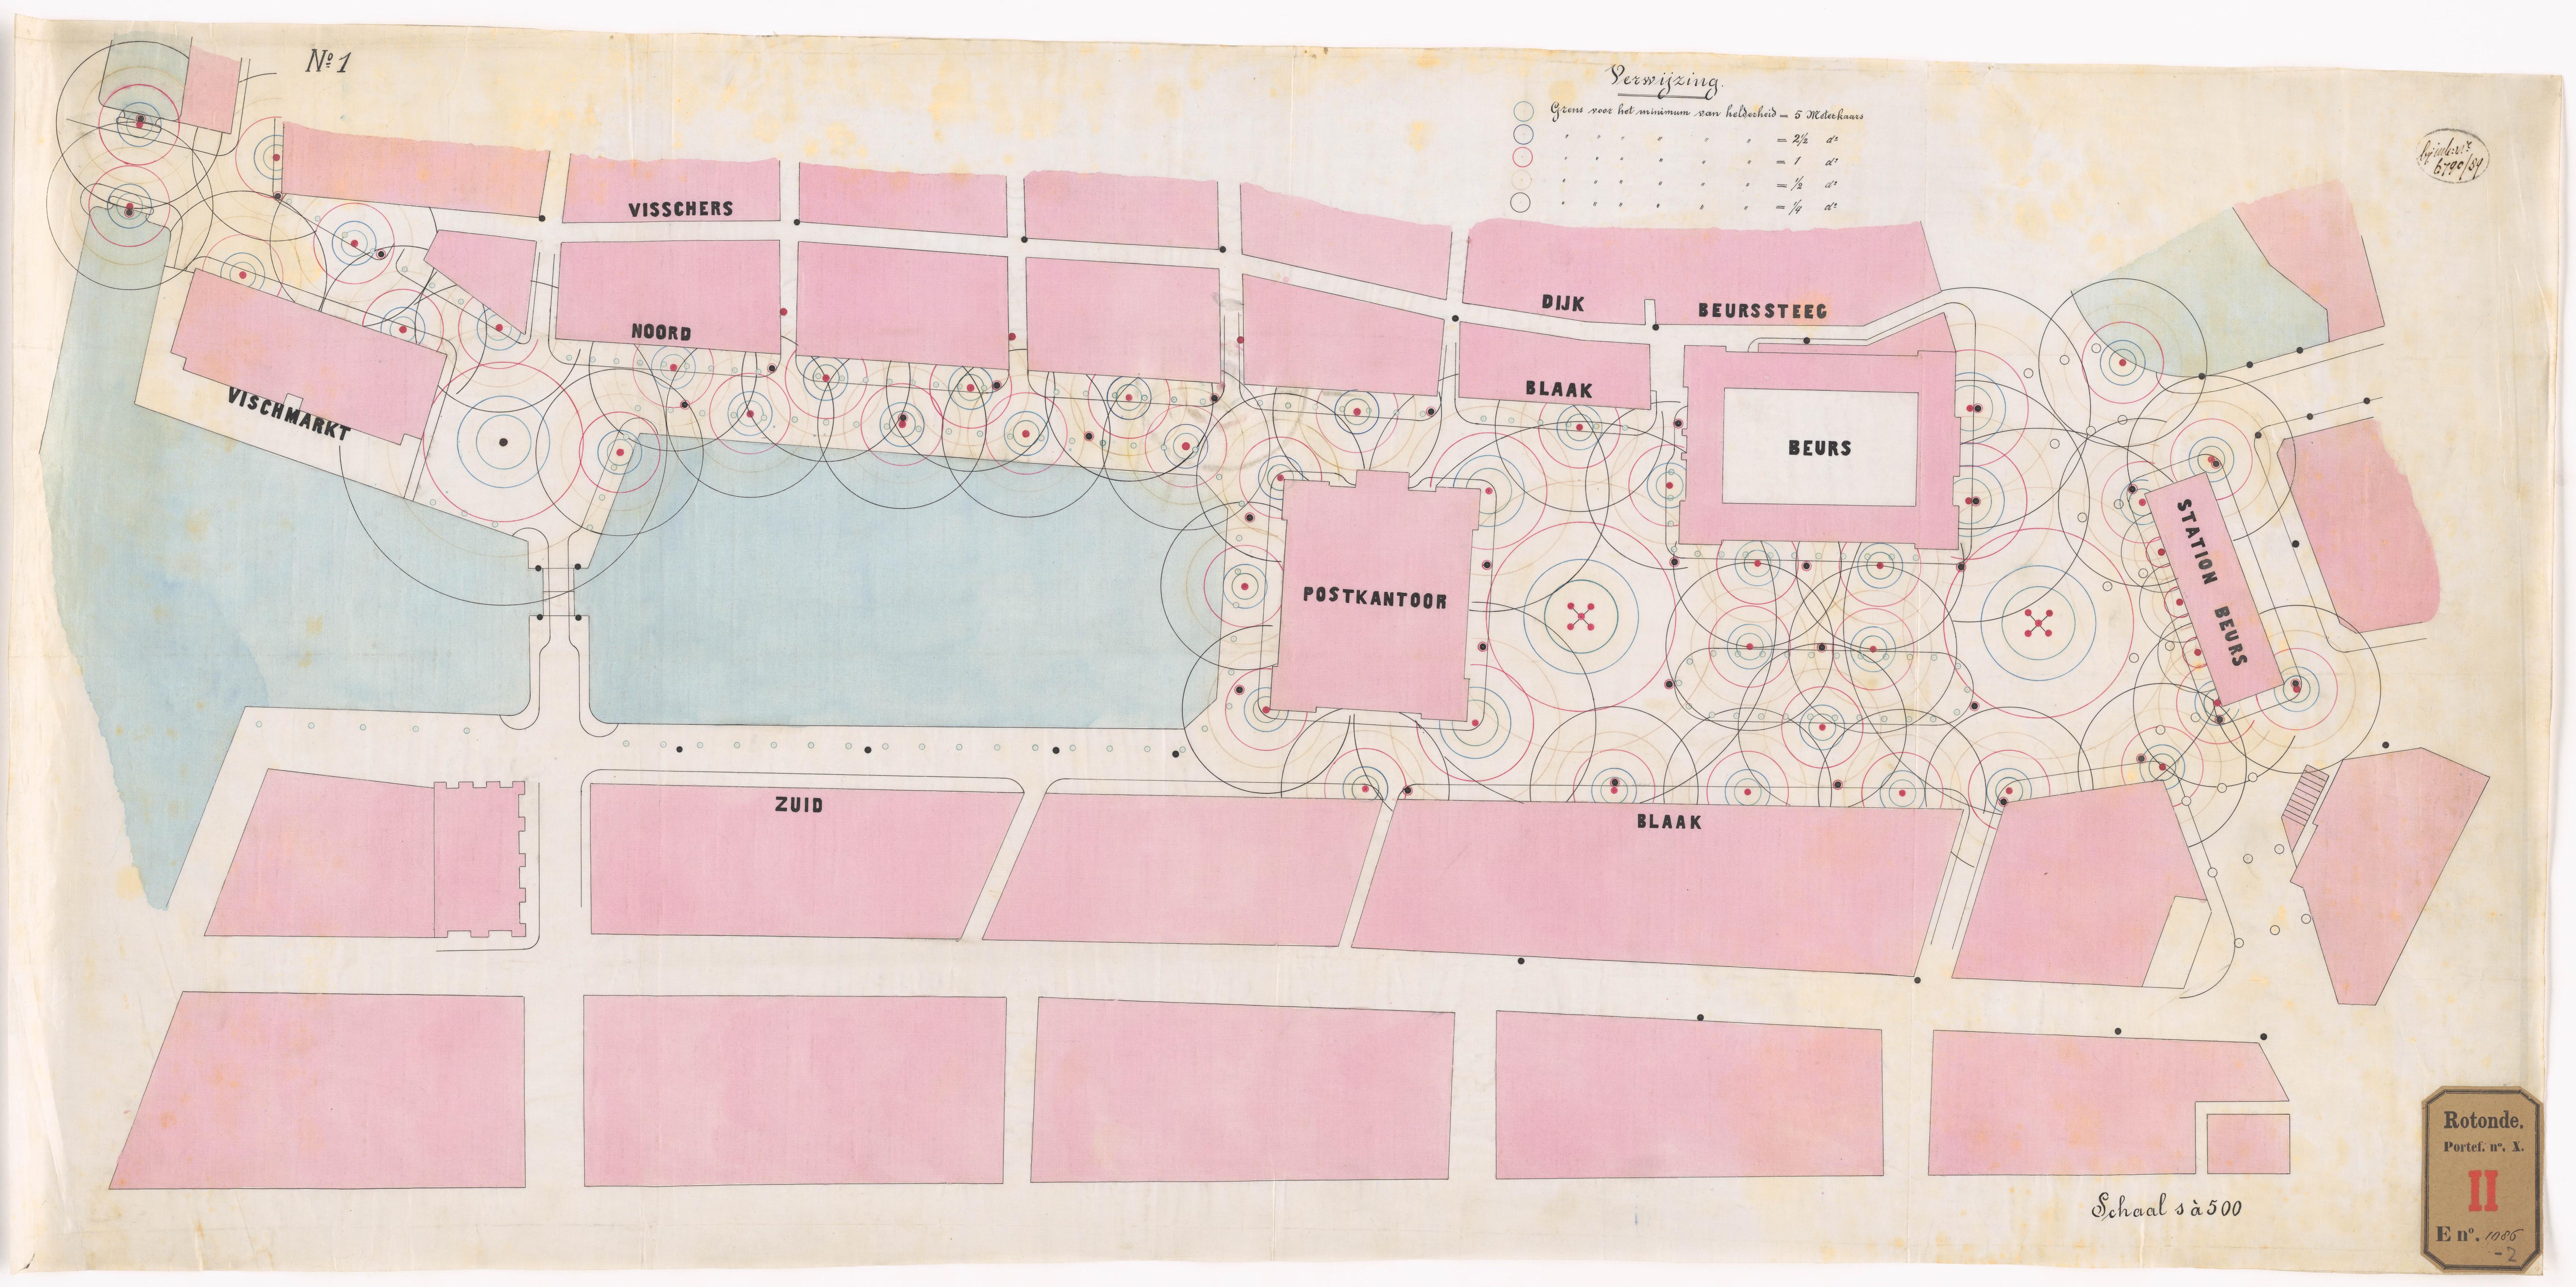 Nº 1
Verwijzing.
Grens voor het minimum van helderheid = 5 Meterkaars
" " " " " " = 2½ dº
" " " " " " = 1 dº
" " " " " " = ½ dº
" " " " " " = ¼ dº
6790/89
VISSCHERS
DIJK
BEURSSTEEG
NOORD
BLAAK
VISCHMARKT
BEURS
STATION BEURS
POSTKANTOOR
ZUID
BLAAK
Schaal s à 500
Rotonde.
Portef. nº. X.
II
E nº. 1086
-2